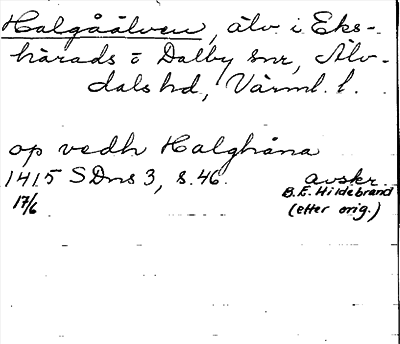 Halgåälven, älv i Eks-
härads o Dalby snr, Älv-
dals hd, Värml. l.
op vedh Halghåna
1415 SDns 3, s. 46. avskr.
17/6 B. E. Hildebrand
(efter orig.)